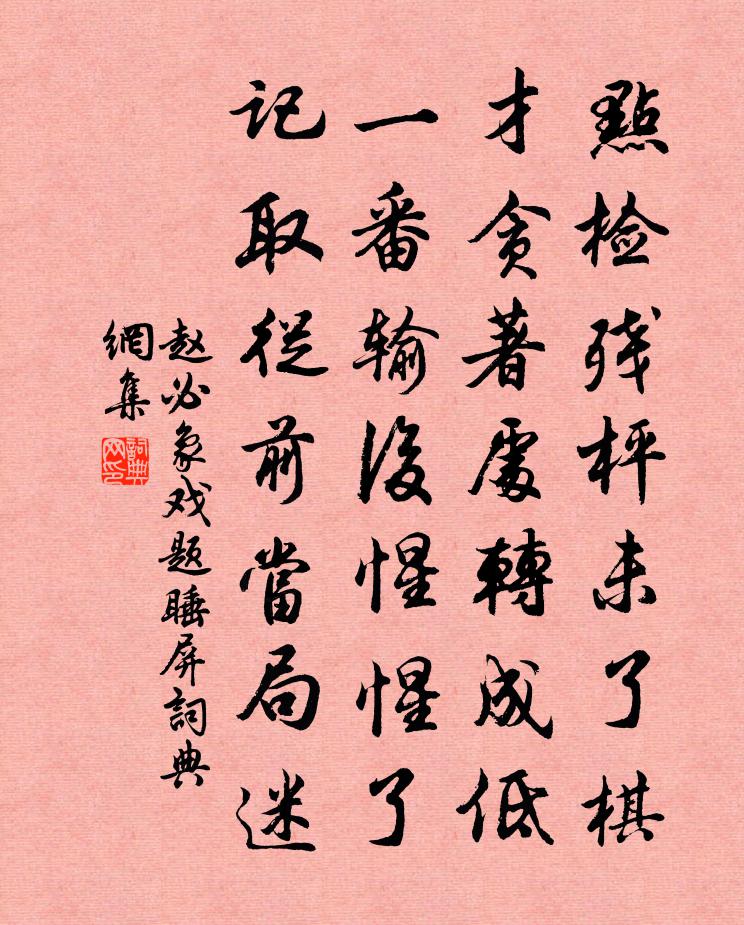 點检残枰未了棋
才贪著處轉成低
一番输後惺惺了
记取從前當局迷
赵必象戏题睡屏詞典
網集
詞典网印